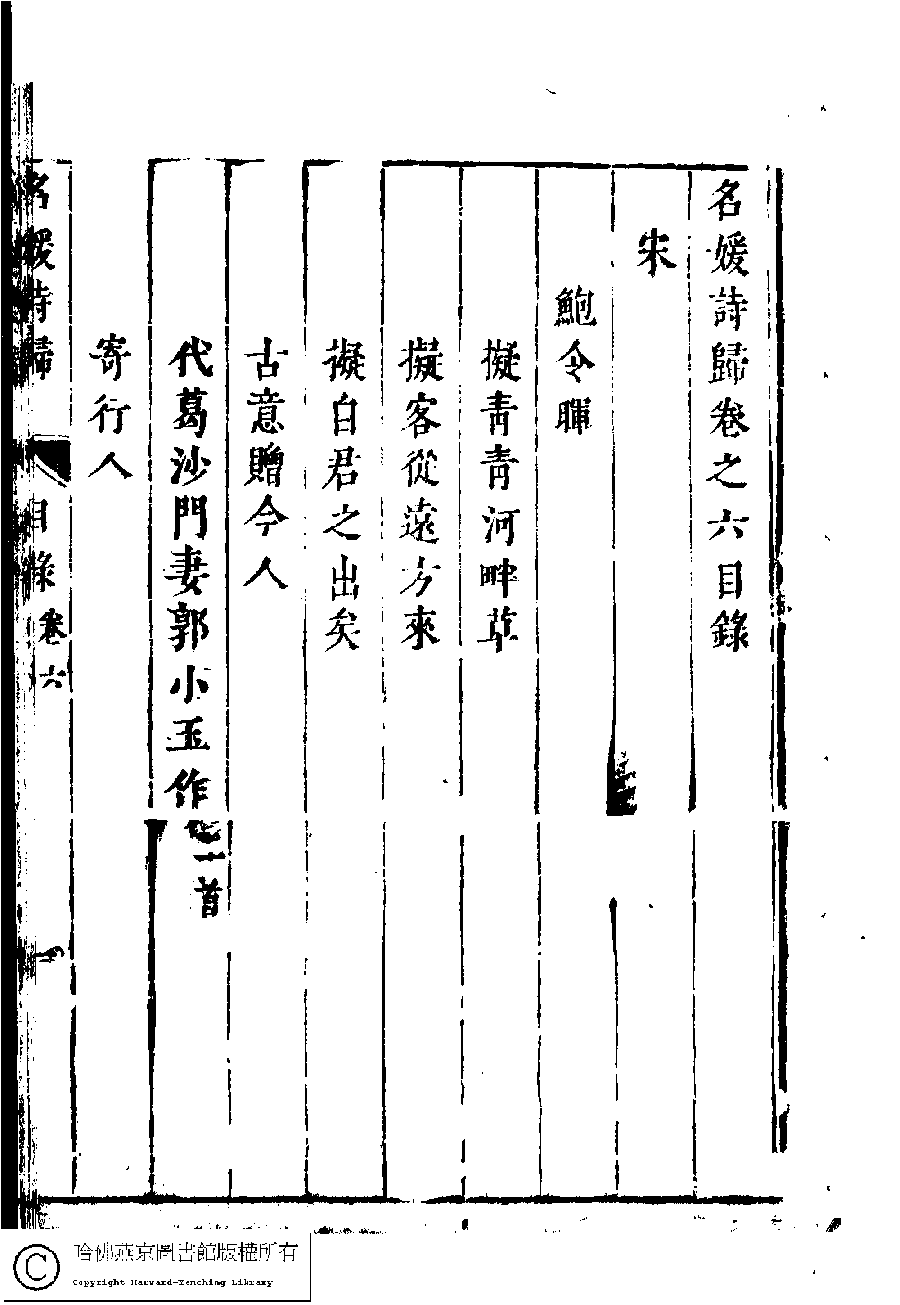 名媛詩歸卷之六目錄
宋
鮑令暉
擬青青河畔草
擬客從遠方來
擬自君之出矣
古意贈今人
代葛沙門妻郭小玉作
一首
寄行人
名媛詩歸
目錄
卷六
哈佛燕京圖書館版權所有
Copyright Harvard-Yenching Library